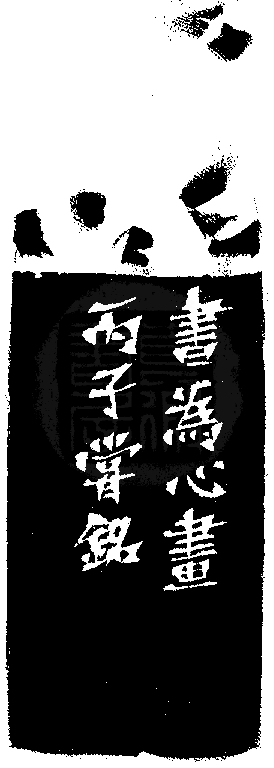 書為心畫
丙子嘗銘